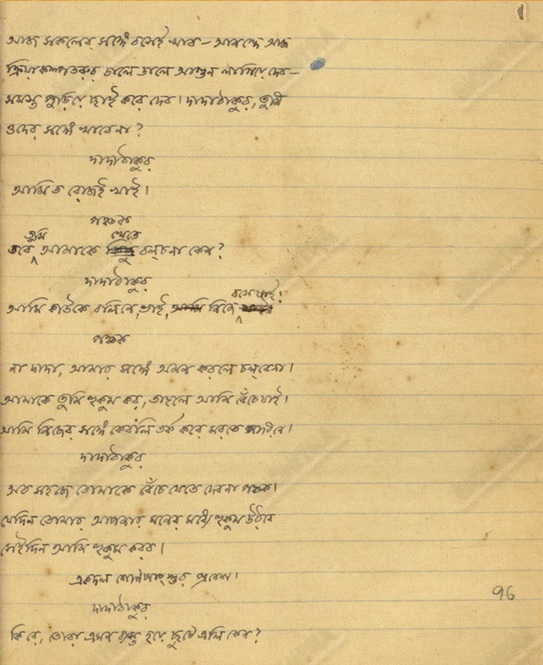 আজ সকলের সঙ্গে বসেই খাব— আনন্দে আজ
ক্রিয়াকল্পতরুর ডালে ডালে আগুন লাগিয়ে দেব—
সমস্ত পুড়িয়ে ছাই করে দেব। দাদাঠাকুর, তুমি
ওদের সঙ্গে খাবেনা?
দাদাঠাকুর
আমিত রোজই খাই।
পঞ্চক
তবে তুমি আমাকে খেতে বল্‌চনা কেন?
দাদাঠাকুর
আমি কাউকে বলিনে, ভাই, নিজে বসে যাই।
পঞ্চক
না দাদা, আমার সঙ্গে অমন করলে চল্‌বেনা।
আমাকে তুমি হুকুম কর, তাহলে আমি বেঁচে যাই।
আমি নিজের সঙ্গে কেবলি তর্ক করে মরতে পারিনে।
দাদাঠাকুর
অত সহজে তোমাকে বেঁচে যেতে দেবনা পঞ্চক।
যেদিন তোমার আপনার মনের মধ্যে হুকুম উঠবে
সেইদিন আমি হুকুম করব।
একদল শোণপাংশুর প্রবেশ।
দাদাঠাকুর
কি রে, তোরা এমন ব্যস্ত হয়ে ছুটে এলি কেন?